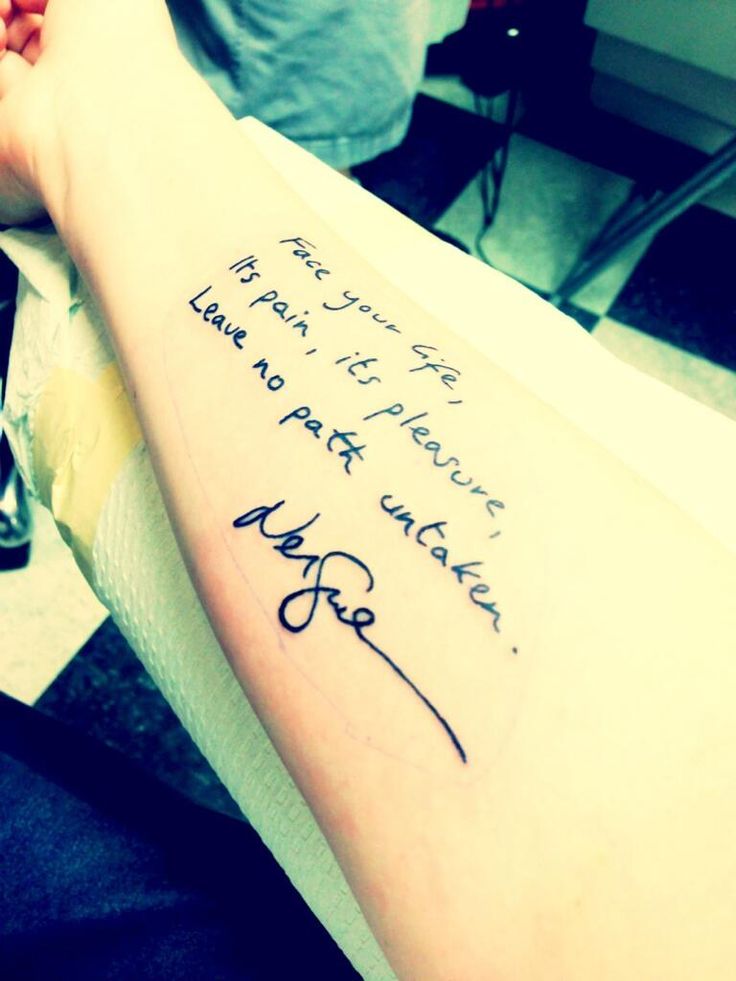 Face your life,
Its pain, its pleasure,
Leave no path untaken.